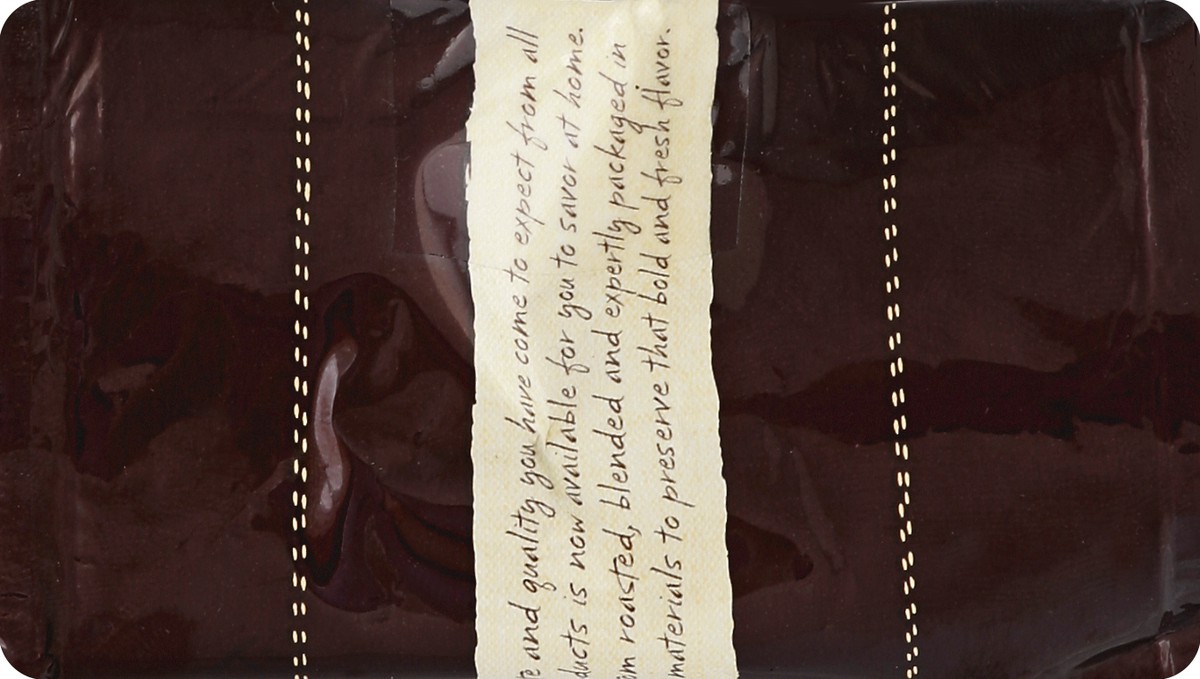 and quality you have come to expect from all
is now available for you to savor at home.
roasted, blended and expertly packaged in
materials to preserve that bold and fresh flavor.